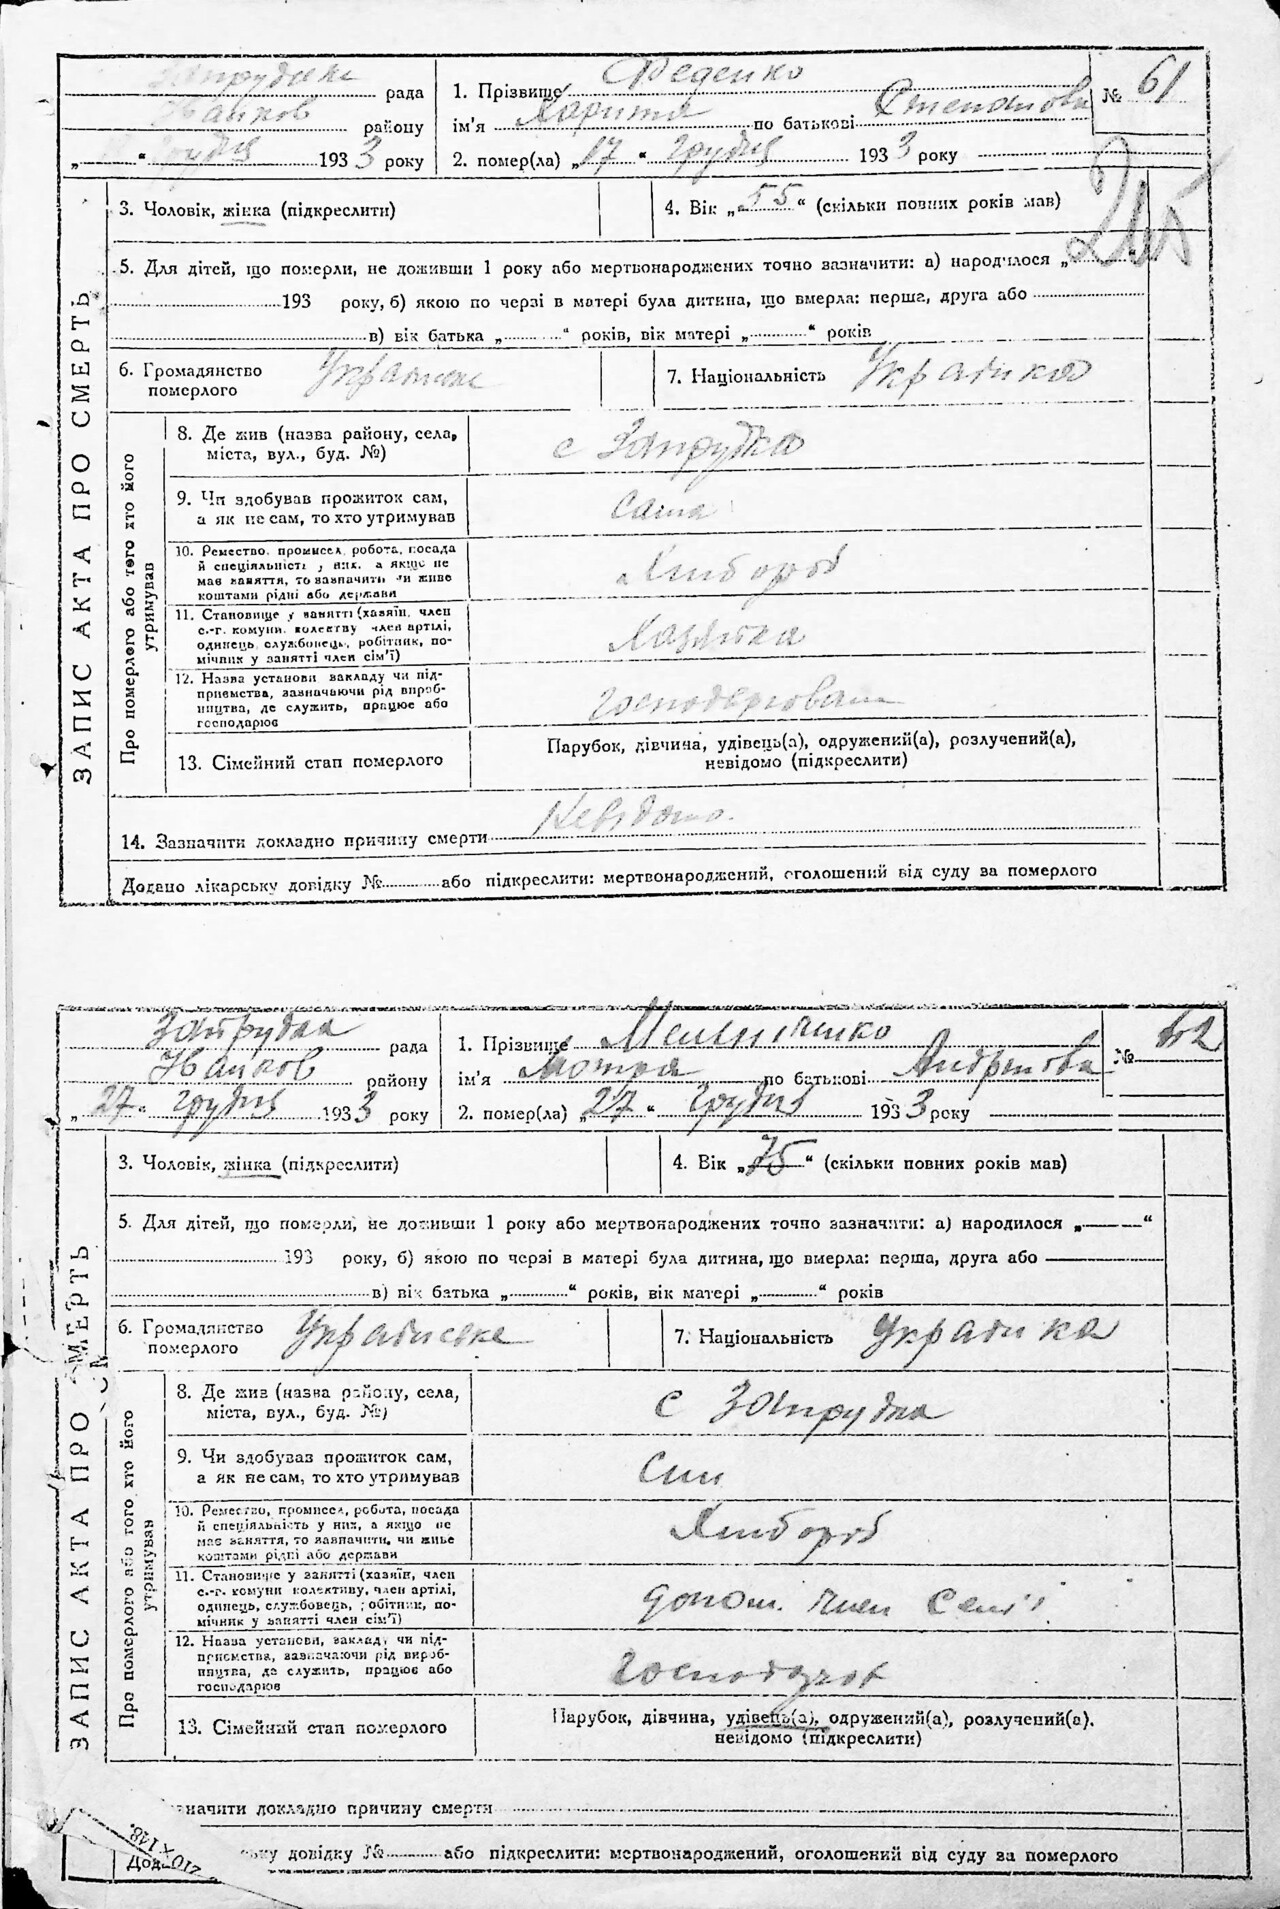 ЗАПИС АКТА ПРО СМЕРТЬ
рада
районну
грудня 1933 року
1. Прізвище Феденко
ім'я Харитя по батькові Степанова
№ 61
2. помер(ла) „17“ грудня 1933 року
3. Чоловік, жінка (підкреслити)
4. Вік „55“ (скільки повних років мав)
5. Для дітей, що померли, не доживши 1 року або мертвонароджених точно зазначити: а) народилося „
193 року, б) якою по черзі в матері була дитина, що вмерла: перша, друга або
в) вік батька „ “ років, вік матері „ “ років
6. Громадянство
померлого
7. Національність Украинка
Про померлого або того хто його
утримував
8. Де жив (назва району, села,
міста, вул., буд. №)
с Запрудка
9. Чи здобував прожиток сам,
а як не сам, то хто утримував
сама
10. Ремество, промисел, робота, посада
й спеціяльність у них, а якщо не
має заняття, то зазначити чи живе
коштами рідні або держави
Хлибороб
11. Становище у занятті (хазяїн, член
с.-г. комуни, колективу член артілі,
одинець, службовець, робітник, по-
мічник у занятті член сім'ї)
Хазяйка
12. Назва установи закладу чи під-
приємства, зазначаючи рід вироб-
ництва, де служить, працює або
господарює
13. Сімейний стан померлого
Парубок, дівчина, удівець(а), одружений(а), розлучений(а),
невідомо (підкреслити)
14. Зазначити докладно причину смерти Невідомо.
Додано лікарську довідку № або підкреслити: мертвонароджений, оголошений від суду за померлого
ЗАПИС АКТА ПРО СМЕРТЬ
Запрудка рада
району
„27“ грудня 1933 року
1. Прізвище Мельниченко
ім'я Мотря по батькові Андріева
№ 62
2. помер(ла) „27“ грудня 1933 року
3. Чоловік, жінка (підкреслити)
4. Вік „75“ (скільки повних років мав)
5. Для дітей, що померли, не доживши 1 року або мертвонароджених точно зазначити: а) народилося „ “
193 року, б) якою по черзі в матері була дитина, що вмерла: перша, друга або
в) вік батька „ “ років, вік матері „ “ років
6. Громадянство
померлого
Украинске
7. Національність Украинка
Про померлого або того хто його
утримував
8. Де жив (назва району, села,
міста, вул., буд. №)
с Запрудка
9. Чи здобував прожиток сам,
а як не сам, то хто утримував
Син
10. Ремество, промисел, робота, посада
й спеціяльність у них, а якщо не
має заняття, то зазначити, чи живе
коштами рідні або держави
Хлибороб
11. Становище у занятті (хазяїн, член
с.-г. комуни колективу, член артілі,
одинець, службовець, робітник, по-
мічник у занятті член сім'ї)
допом. член семі
12. Назва установи, закладу чи під-
приємства, зазначаючи рід вироб-
ництва, де служить, працює або
господарює
13. Сімейний стан померлого
Парубок, дівчина, удівець(а), одружений(а), розлучений(а),
невідомо (підкреслити)
значити докладно причину смерти
Дод
довідку № або підкреслити: мертвонароджений, оголошений від суду за померлого
210×148.